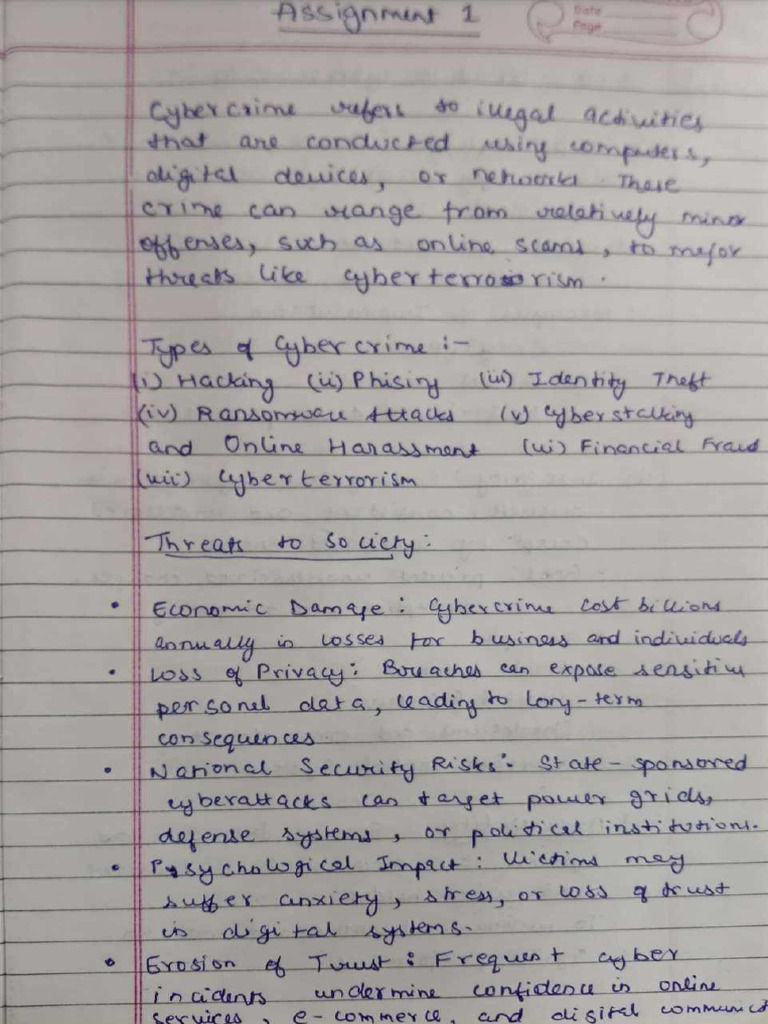 Assignment 1
Date
Page
Cybercrime refers to illegal activities
that are conducted using computers,
digital devices, or networks. These
crime can range from relatively minor
offenses, such as online scams, to major
threats like cyberterrorism.
Types of Cybercrime :-
(i) Hacking (ii) Phising (iii) Identity Theft
(iv) Ransomware Attacks (v) Cyberstalking
and Online Harassment (vi) Financial Fraud
(vii) Cyberterrorism
Threats to Society:
• Economic Damage : Cybercrime cost billions
annually in losses for business and individuals
• Loss of Privacy: Breaches can expose sensitive
personal data, leading to long-term
consequences
• National Security Risks:- State-sponsored
cyberattacks can target power grids,
defense systems, or political institutions.
• Psychological Impact : Victims may
suffer anxiety, stress, or loss of trust
in digital systems.
• Erosion of Trust : Frequent cyber
incidents undermine confidence in online
services, e-commerce, and digital communic